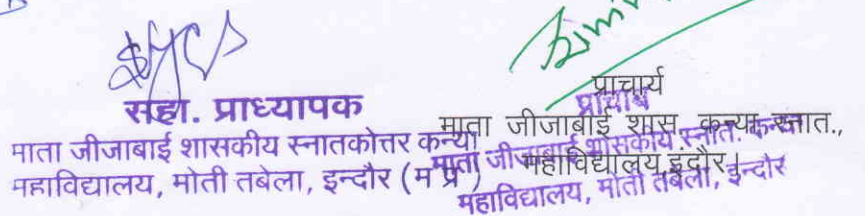 सहा. प्राध्यापक
माता जीजाबाई शासकीय स्नातकोत्तर कन्या
महाविद्यालय, मोती तबेला, इन्दौर (म प्र )
प्राचार्य
माता जीजाबाई शास. कन्या स्नात.,
महाविद्यालय,इंदौर।
प्राचार्य
माता जीजाबाई शासकीय स्नात. कन्या
महाविद्यालय, मोती तबेला, इन्दौर